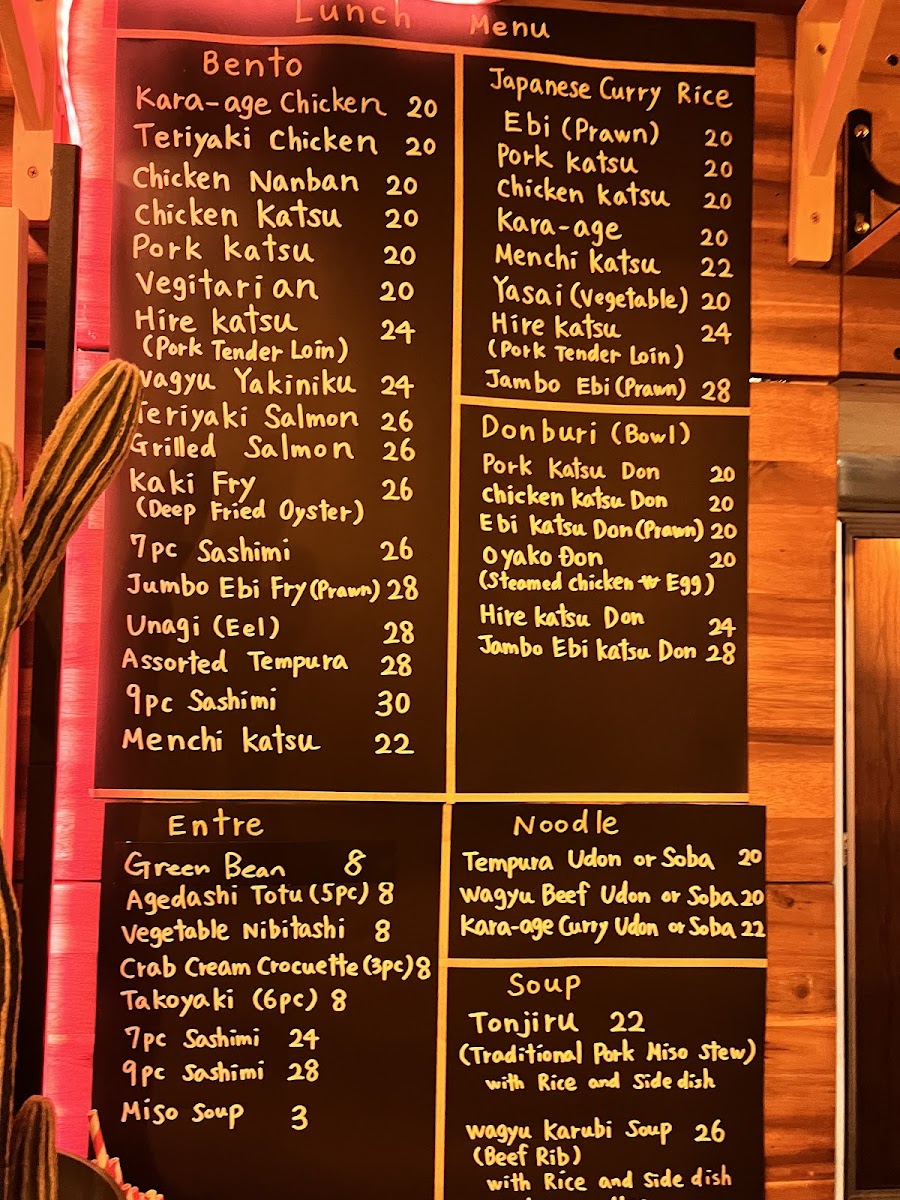 Lunch Menu
Bento
Kara-age Chicken 20
Teriyaki Chicken 20
Chicken Nanban 20
Chicken Katsu 20
Pork Katsu 20
Vegitarian 20
Hire Katsu 24
(Pork Tender Loin)
Wagyu Yakiniku 24
Teriyaki Salmon 26
Grilled Salmon 26
Kaki Fry 26
(Deep Fried Oyster)
7pc Sashimi 26
Jumbo Ebi Fry (Prawn) 28
Unagi (Eel) 28
Assorted Tempura 28
9pc Sashimi 30
Menchi Katsu 22
Japanese Curry Rice
Ebi (Prawn) 20
Pork Katsu 20
Chicken Katsu 20
Kara-age 20
Menchi Katsu 22
Yasai (Vegetable) 20
Hire Katsu 24
(Pork Tender Loin)
Jambo Ebi (Prawn) 28
Donburi (Bowl)
Pork Katsu Don 20
Chicken Katsu Don 20
Ebi Katsu Don (Prawn) 20
Oyako Don 20
(Steamed Chicken Egg)
Hire Katsu Don 24
Jambo Ebi Katsu Don 28
Entre
Green Bean 8
Agedashi Totu (5pc) 8
Vegetable Nibitashi 8
Crab Cream Crocuette (3pc) 8
Takoyaki (6pc) 8
7pc Sashimi 24
9pc Sashimi 28
Miso Soup 3
Noodle
Tempura Udon or Soba 20
Wagyu Beef Udon or Soba 20
Kara-age Curry Udon or Soba 22
Soup
Tonjiru 22
(Traditional Pork Miso Stew)
with Rice and Side dish
Wagyu Karubi Soup 26
(Beef Rib)
with Rice and Side dish